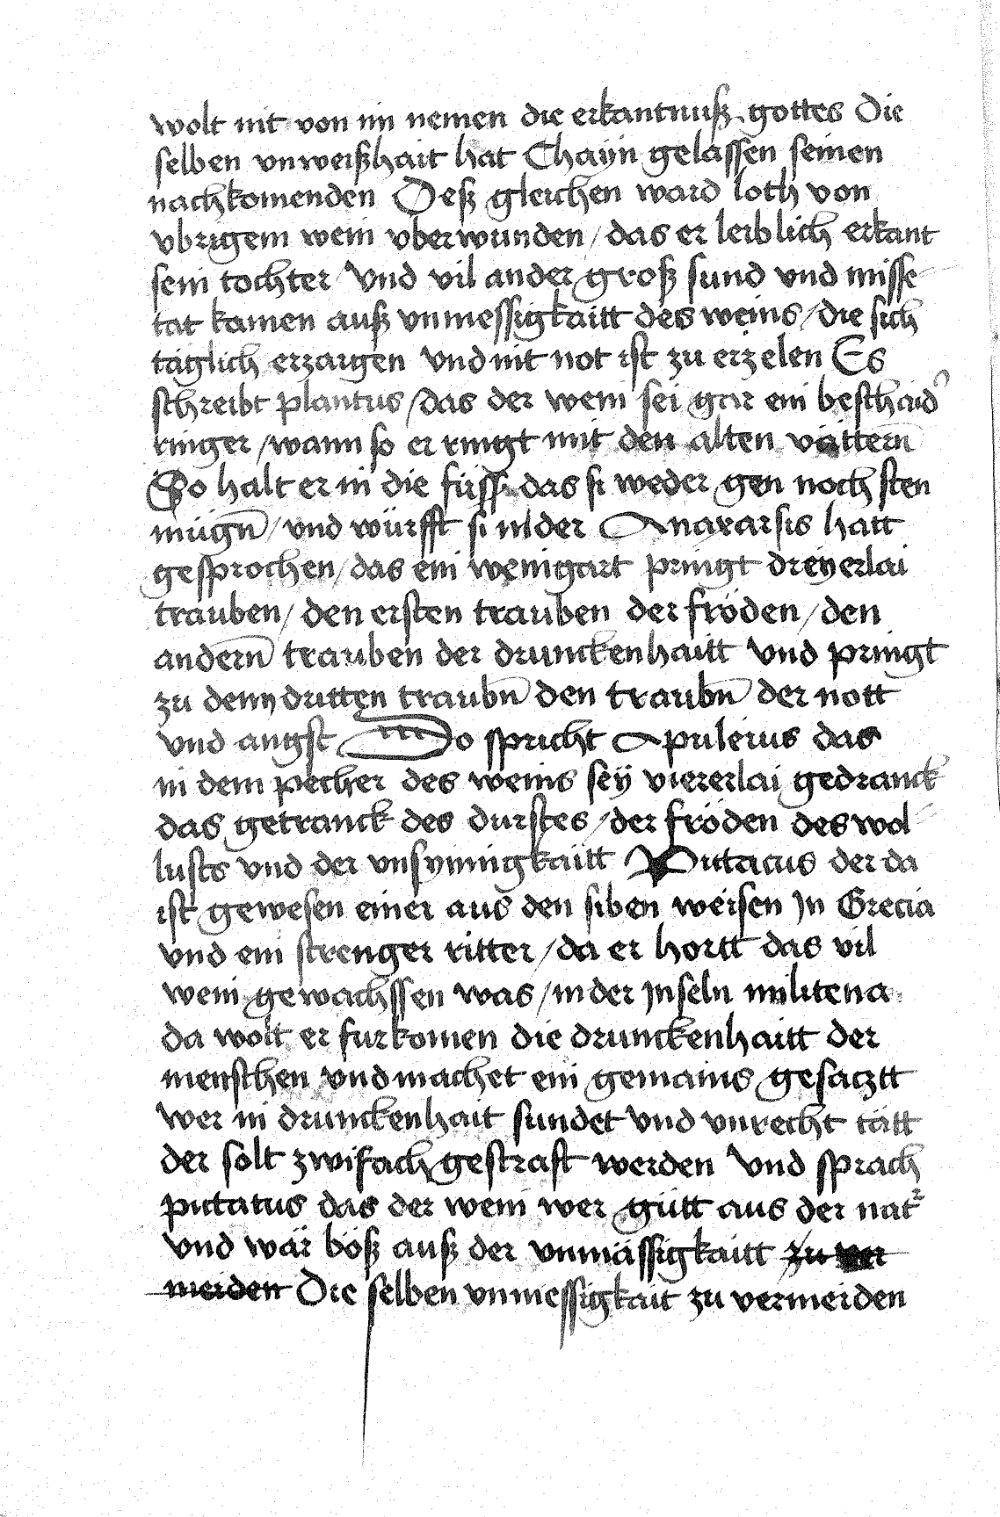 wolt nit von im nemen die erkantnuß gottes Die
selben vnweißhait hat Chayn gelassen seinen
nachkomenden Deß gleichen ward loth von
vbrigem wein vberwunden / das er leiblich erkant
sein tochter Vnd vil ander groß sund vnd misse-
tat kamen auß vnmessigkaitt des weins / die sich
täglich erzaigen Vnd nit not ist zu erzelen Es
schreibt plantus / das der wein sei gar ein beschaid'
ringer / wann so er ringt mit den alten vättern̄
So halt er in die füss das si weder gen noch sten
mügn̄ / vnd würfft si nider Anaxarsis hatt
gesprochen / das ein weingart pringt dreyerlai
trauben / den ersten trauben der fröden / den
andern̄ trauben der drunckenhaitt Vnd pringt
zu dem dritten traubn̄ den traubn̄ der nott
vnd angst Do spricht Apuleius das
in dem pecher des weins sey viererlai gedranck
das getranck des durstes / der fröden des wol-
lusts vnd der vnsynnigkaitt Pittacus der da
ist gewesen einer aus den siben weisen Jn Grecia
vnd ein strenger ritter / da er hortt das vil
wein gewachssen was / in der Jnseln militena
da wolt er furkomen die drunckenhaitt der
menschen vnd machet ein gemains gesaczt
wer in drunckenhait sundet Vnd vnrecht tätt
der solt zwifach gestraft werden Vnd sprach
pictatus das der wein wer gütt aus der nat²
vnd wär böß auß der vnmässigkaitt zu ver
meiden Die selben vnmessigkait zu vermeiden